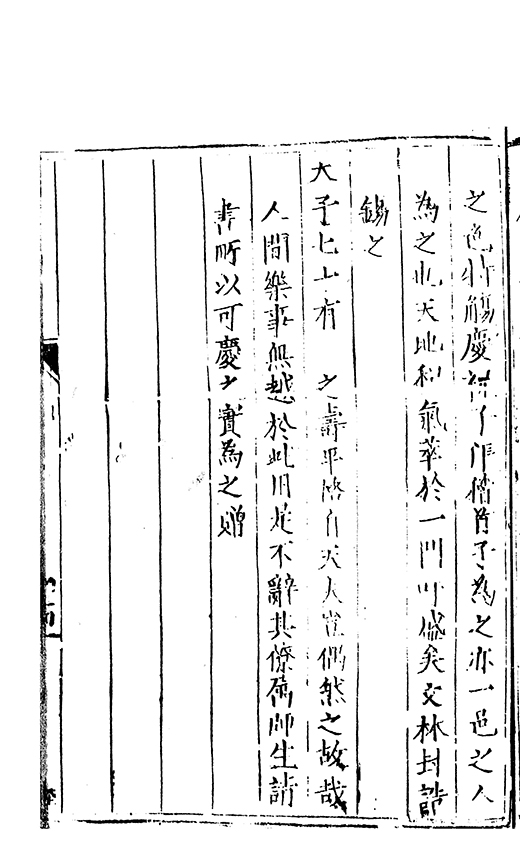 之邑將觴慶 為之亦一邑之人
為之也天地和氣萃於一門吁盛矣文林封誥
錫之
天子七十有 之壽 自天人豈偶然之故哉
人間樂事無越於此用是不辭其僚屬師生請
書所以可慶之實為之贈